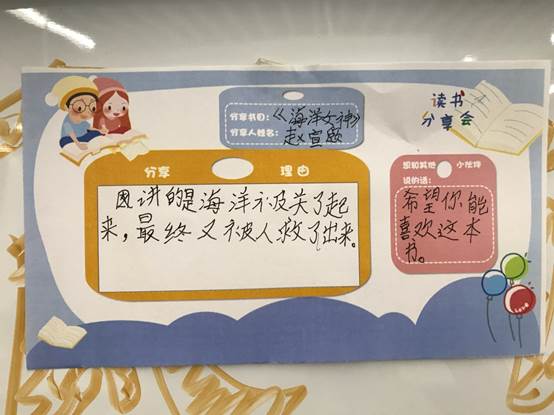 读书
分享会
分享书目:《海洋女神》
分享人姓名: 赵宣
分享 理由
讲的是海洋被关了起
来,最终又被人救了出来。
想和其他 小伙伴
说的话:
希望你能
喜欢这本
书。